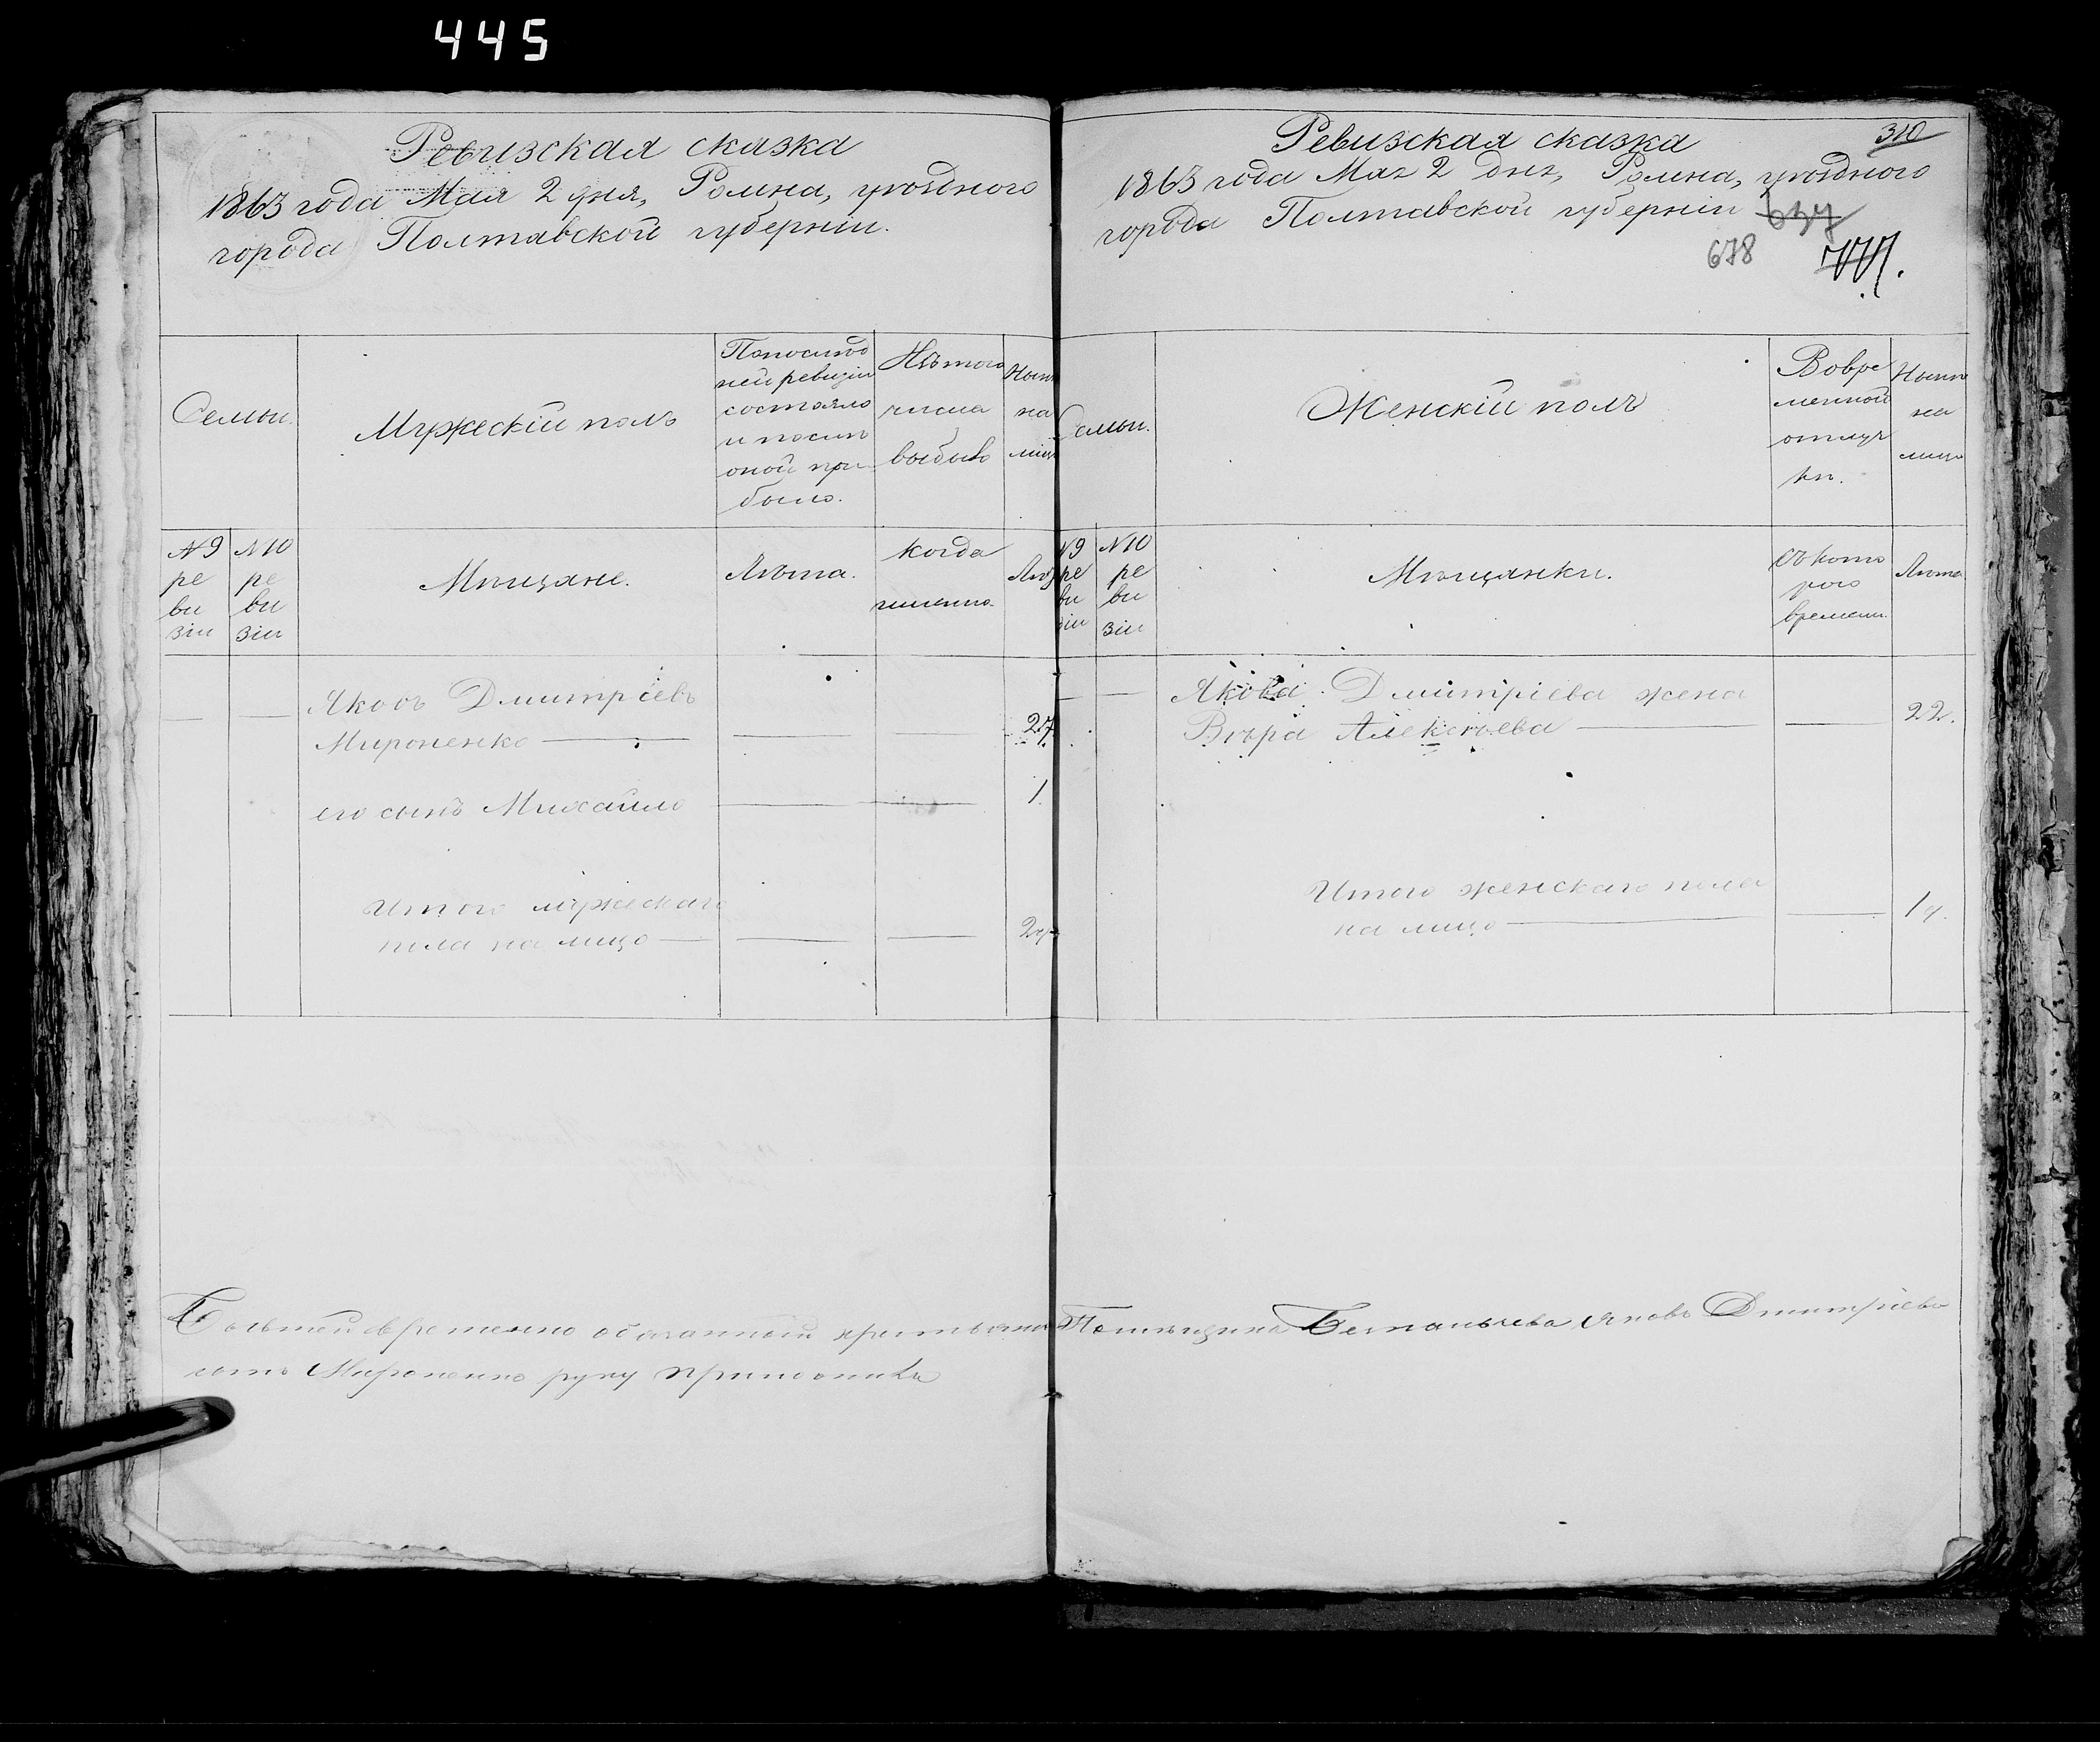 445
Ревизская сказка
1863 года Мая 2 дня, Ромна, уѣзднаго
города Полтавской губерніи.
Семьи.
Мужескій полъ
Попослѣд
ней ревизіи
состояло
и послѣ
оной при
было.
Изъ того
числа
выбыло
Нынѣ
на
лицо
№ 9
ре
ви
зіи
№ 10
ре
ви
зіи
Мѣщане.
Лѣта.
когда
именно.
Лѣта
Яковъ Дмитріевъ
Мироненко
27.
его сынъ Михайло
1.
Итого мужескаго
пола на лицо
2
Ревизская сказка
310
1863 года Мая 2 дня, Ромна, уѣзднаго
города Полтавской губерніи
637
678
Семьи.
Женскій полъ
Вовре
менной
отлуч
кѣ.
Нынѣ
на
лицо
№ 9
ре
ви
зіи
№ 10
ре
ви
зіи
Мѣщанки.
Съ кото
раго
времени.
Лѣта.
Якова Дмитріева жена
Вѣра Алексѣева
22.
Итого женскаго пола
на лицо
1
временно обязанный крестьянинъ Помѣщика Яковъ Дмитріевъ
сынъ Мироненко руку приложилъ